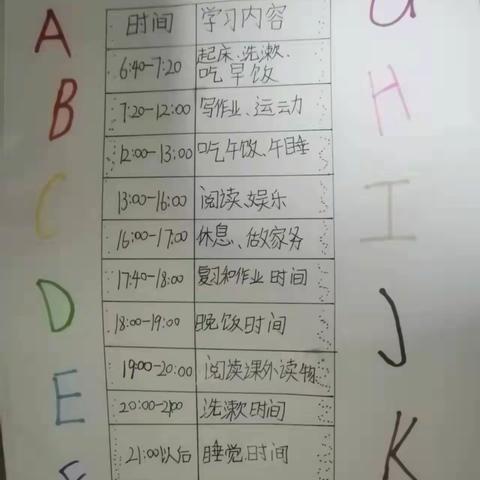 A
B
C
D
E
时间 学习内容
6:40-7:20 起床、洗漱、
吃早饭
7:20-12:00 写作业、运动力
12:00-13:00 吃午饭、午睡
13:00-16:00 阅读、娱乐
16:00-17:00 休息、做家务
17:40-18:00 复习和作业时间
18:00-19:00 晚饭时间
19:00-20:00 阅读课外读物
20:00-21:00 洗漱时间
21:00以后 睡觉时间
H
I
J
K